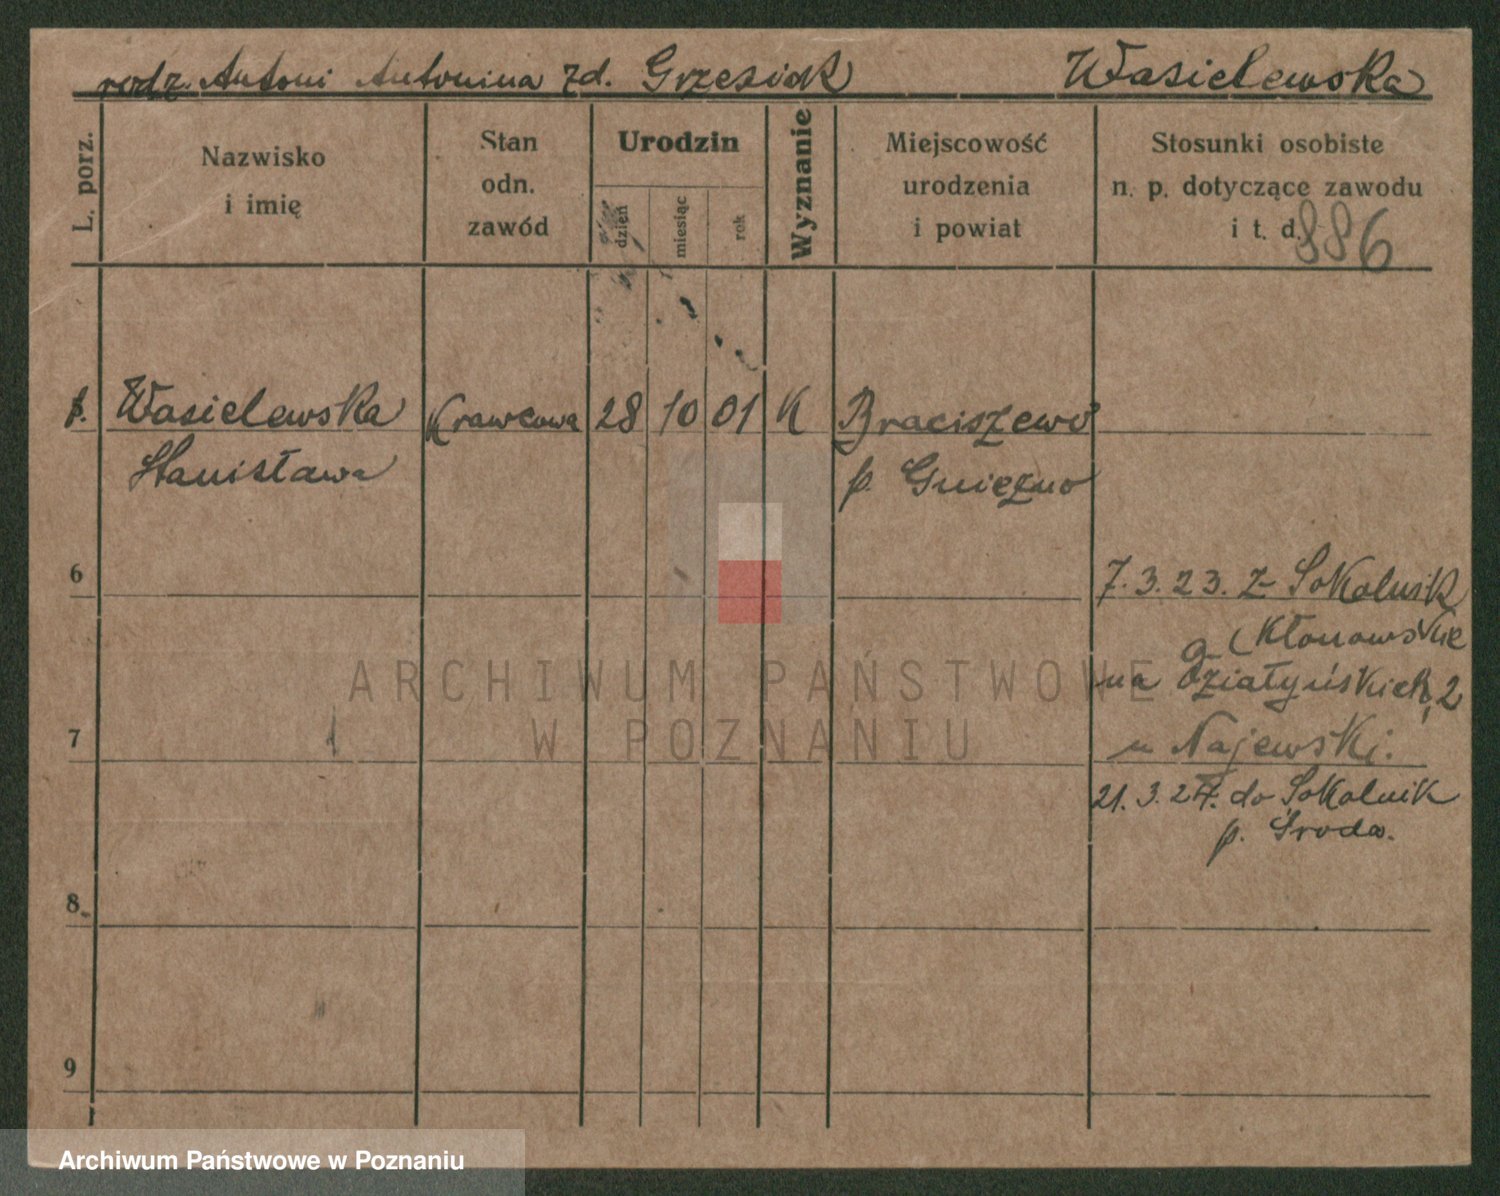 rodz. Antoni Antonina zd. Grzesiak Wasielewska
L. porz.
Nazwisko
i imię
Stan
odn.
zawód
Urodzin
dzień
miesiąc
rok
Wyznanie
Miejscowość
urodzenia
i powiat
Stosunki osobiste
n. p. dotyczące zawodu
i t. d.
886
1. Wasielewska Krawcowa 28 10 01 K Braciszewo
Stanisława p. Gniezno
6
7. 3. 23. z Sokolnik
Kłonowskie
na Działyńskich 2
u Najewski.
7
21. 3. 24. do Sokolnik
p. Środa.
8
9
ARCHIWUM PAŃSTWOWE
W POZNANIU
Archiwum Państwowe w Poznaniu